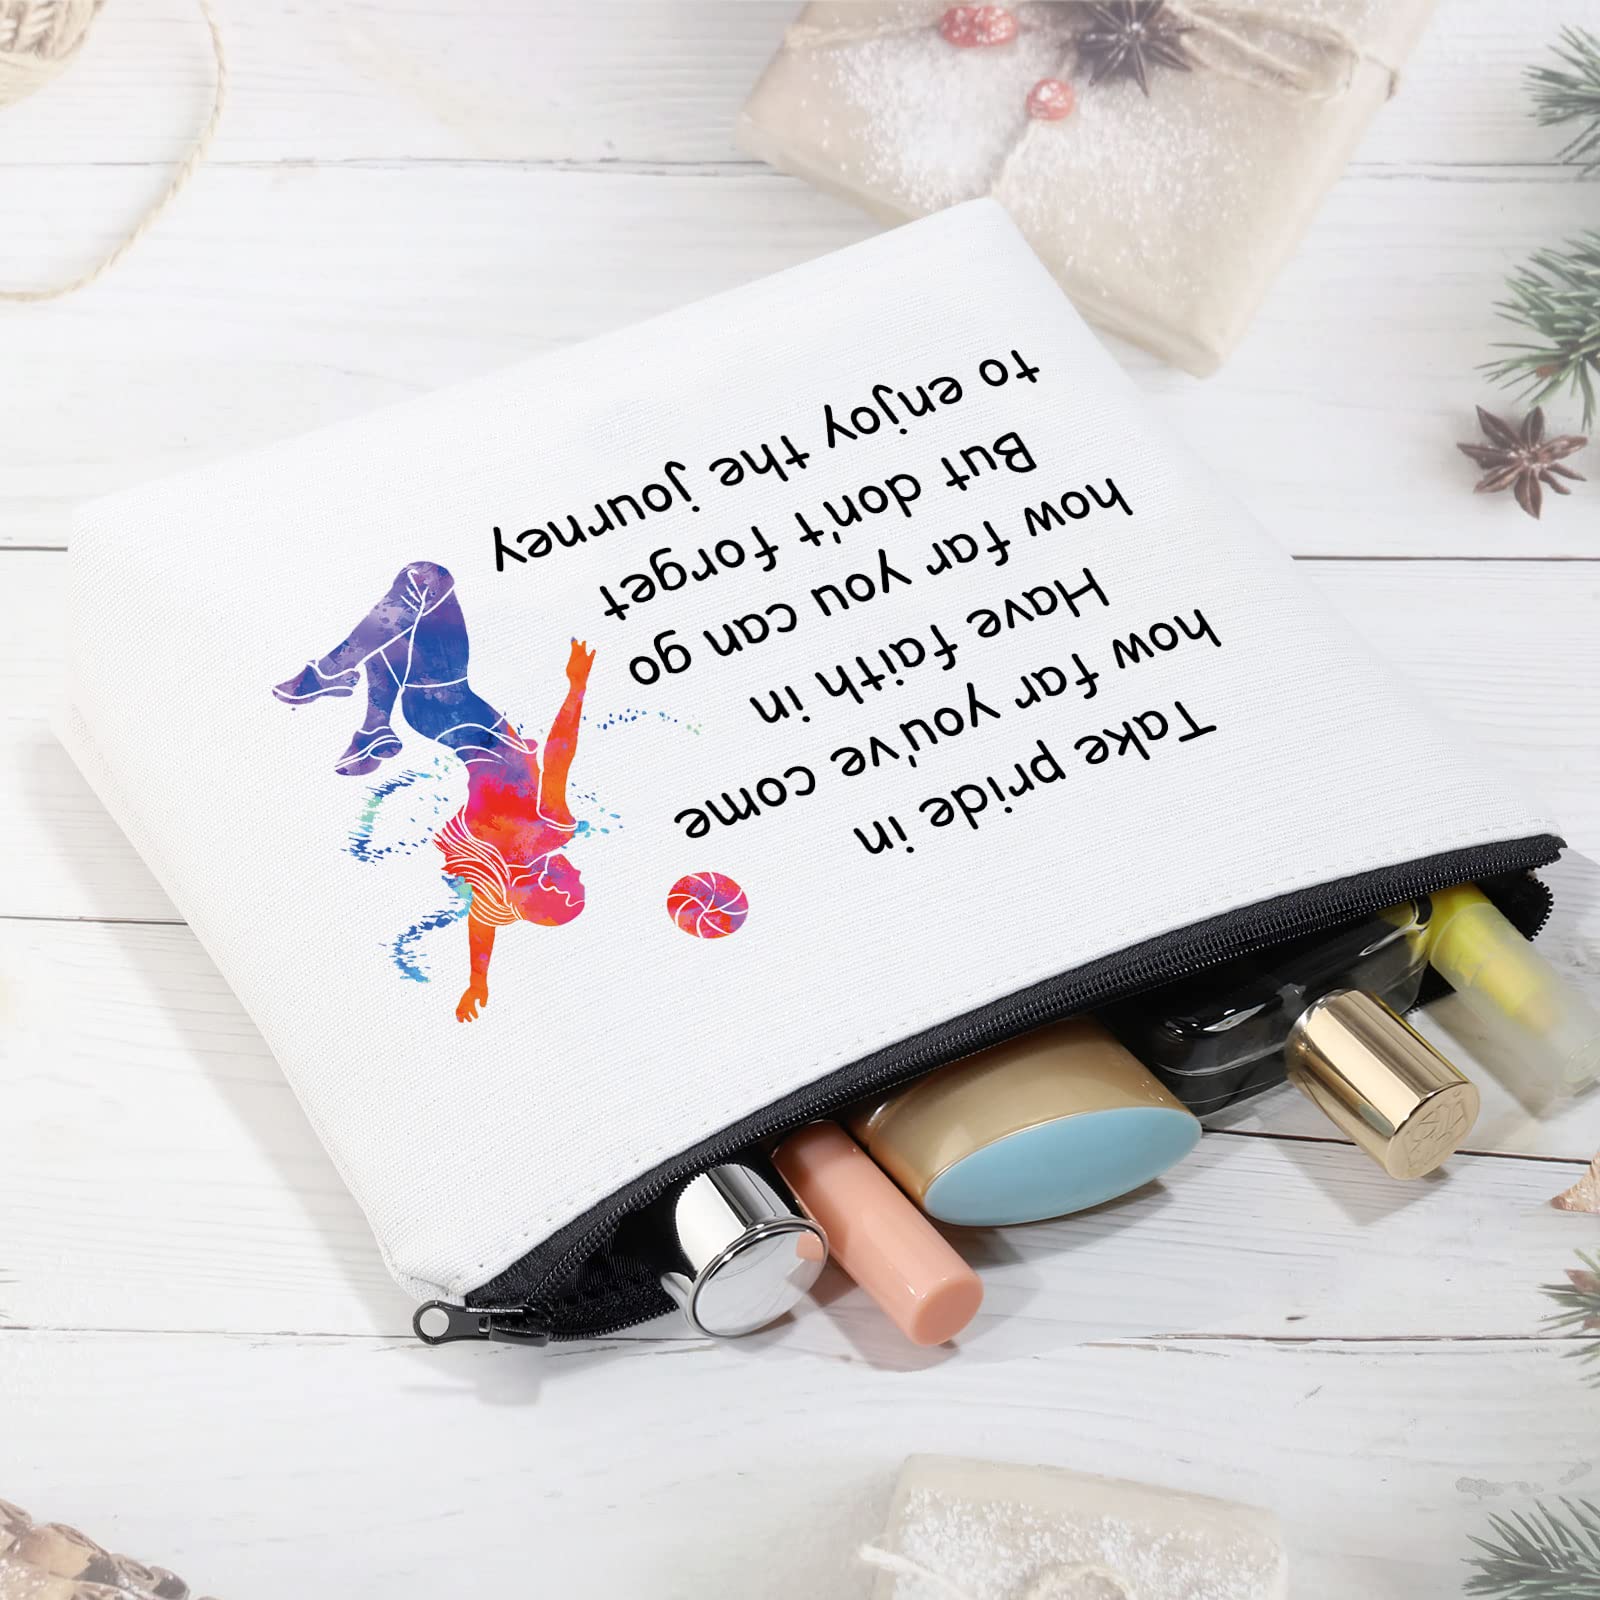 Take pride in
how far you've come
Have faith in
how far you can go
But don't forget
to enjoy the journey